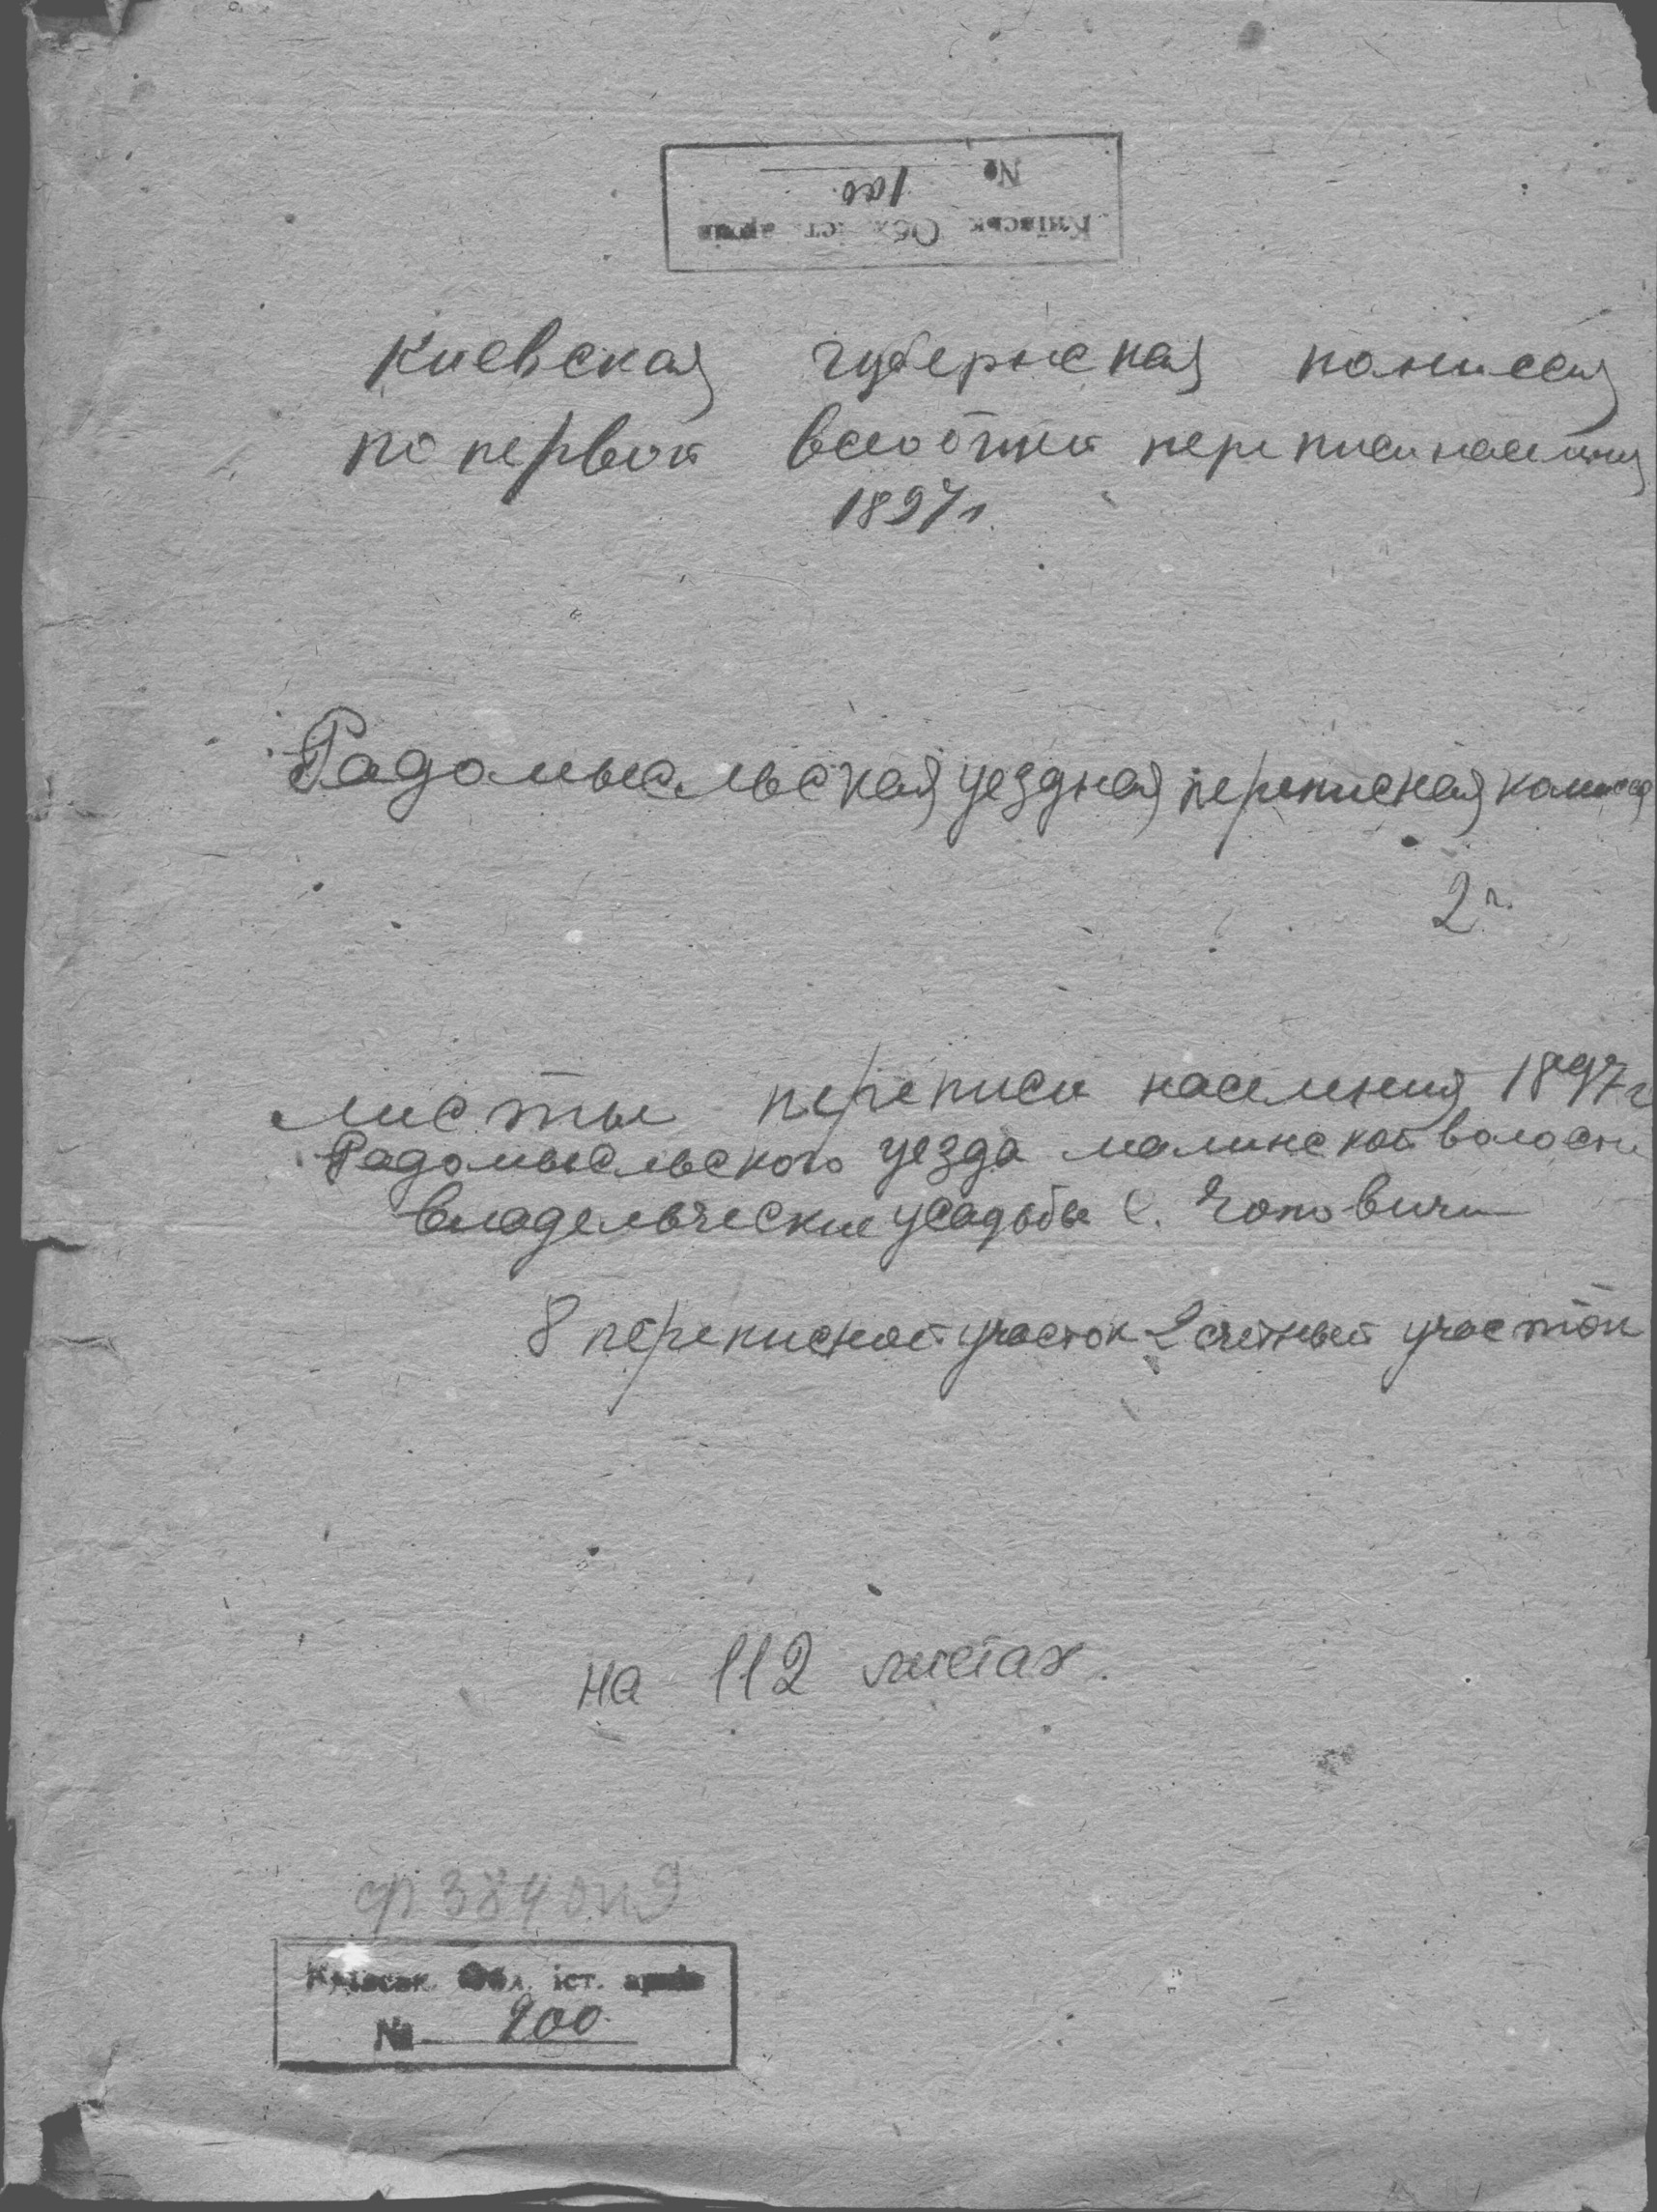 № 100
Київськ. Обл. іст. архів
Киевская губернская комиссия
по первой всеобщей переписи населения
1897 г.
Радомысльская уездная переписная комиссия
2
Листы переписи населения 1897 г
Радомысльского уезда малинской волости
владельческие усадьбы с. Чоповичи
8 переписной участок 2 счетный участок
на 112 листах.
ф 384 оп 9
Київськ. Обл. іст. архів
№ 200